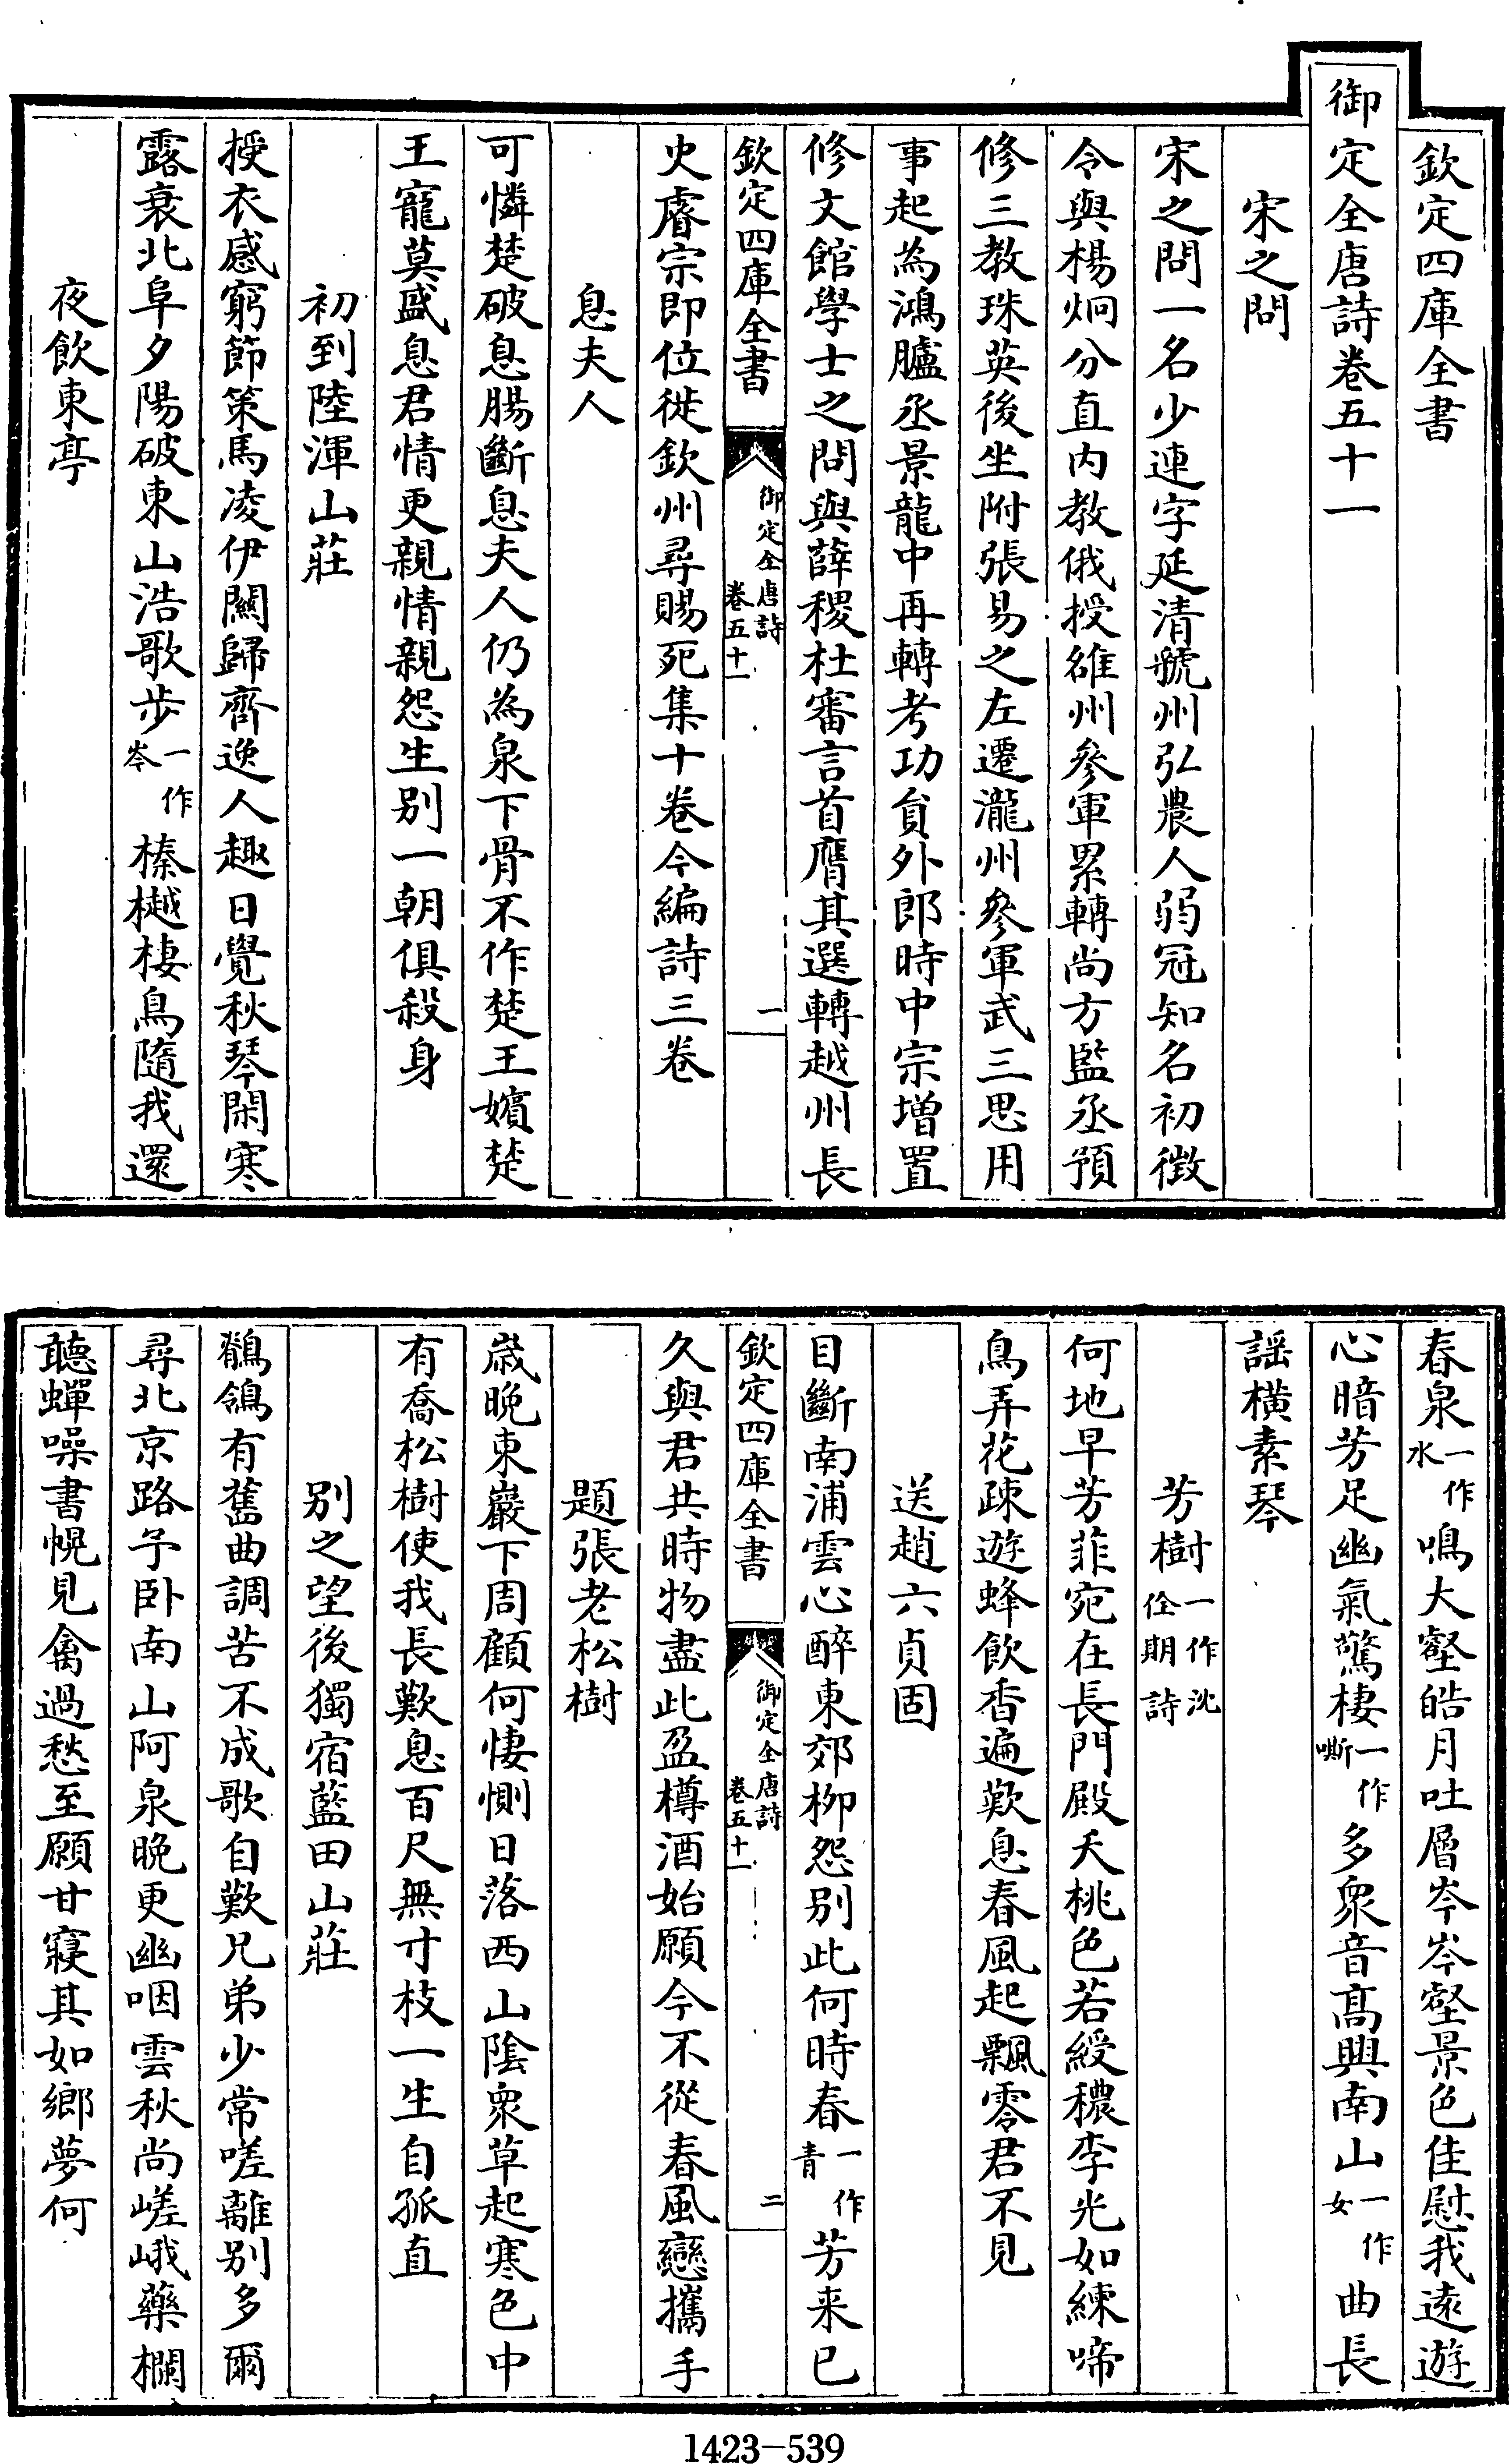 欽定四庫全書
御定全唐詩卷五十一
宋之問
宋之問一名少連字延清虢州弘農人弱冠知名初徴
令與楊炯分直内教俄授雒州參軍累轉尚方監丞預
修三教珠英後坐附張易之左遷瀧州參軍武三思用
事起為鴻臚丞景龍中再轉考功貟外郎時中宗増置
修文館學士之問與薛稷杜審言首膺其選轉越州長
欽定四庫全書
御定全唐詩
卷五十一
一
史睿宗即位徙欽州尋賜死集十卷今編詩三卷
息夫人
可憐楚破息腸斷息夫人仍為泉下骨不作楚王嬪楚
王寵莫盛息君情更親情親怨生别一朝俱殺身
初到陸渾山莊
授衣感窮節策馬凌伊闕歸齊逸人趣日覺秋琴閑寒
露衰北阜夕陽破東山浩歌步一作岑榛樾棲鳥隨我還
夜飲東亭
春泉一作水鳴大壑皓月吐層岑岑壑景色佳慰我遠遊
心暗芳足幽氣驚棲一作嘶多衆音髙興南山一作女曲長
謡横素琴
芳樹一作沈佺期詩
何地早芳菲宛在長門殿夭桃色若綬穠李光如練啼
鳥弄花疎遊蜂飲香遍歎息春風起飄零君不見
送趙六貞固
目斷南浦雲心醉東郊柳怨别此何時春一作青芳来已
欽定四庫全書
御定全唐詩
卷五十一
二
久與君共時物盡此盈樽酒始願今不從春風戀攜手
題張老松樹
嵗晚東巖下周顧何悽惻日落西山陰衆草起寒色中
有喬松樹使我長歎息百尺無寸枝一生自孤直
别之望後獨宿藍田山莊
鶺鴒有舊曲調苦不成歌自歎兄弟少常嗟離别多爾
尋北京路予卧南山阿泉晚更幽咽雲秋尚嵯峨藥欄
聽蟬噪書幌見禽過愁至願甘寢其如鄉夢何
1423-539